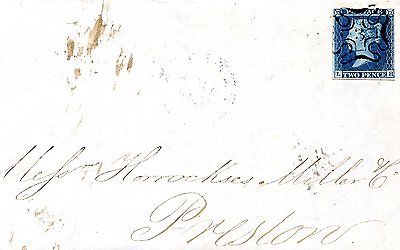 POSTAGE
TWO PENCE
L
Messrs Horrockses Miller & Co
Preston